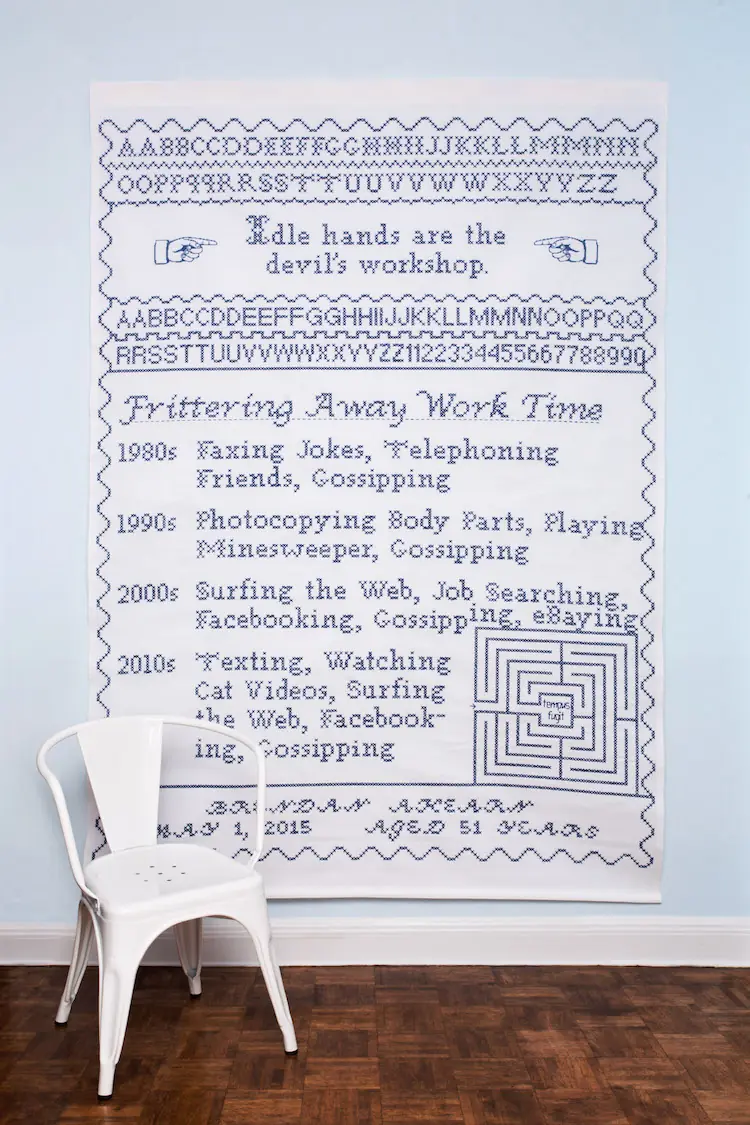 AABBCCDDEEFFGGHHIIJJKKLLMMNN
OOPPqqRRSSTTUUVVWWXXYYZZ
Idle hands are the
devil's workshop.
AABBCCDDEEFFGGHHIIJJKKLLMMNNOOPPQQ
RRSSTTUUVVWWXXYYZZ11223344556677889990
Frittering Away Work Time
1980s Faxing Jokes, Telephoning
Friends, Gossipping
1990s Photocopying Body Parts, Playing
Minesweeper, Gossipping
2000s Surfing the Web, Job Searching,
Facebooking, Gossipping, eBaying
2010s Texting, Watching
Cat Videos, Surfing
the Web, Facebook-
ing, Gossipping
tempus
fugit
BRENDAN AHEARN
MAY 1, 2015 AGED 51 YEARS